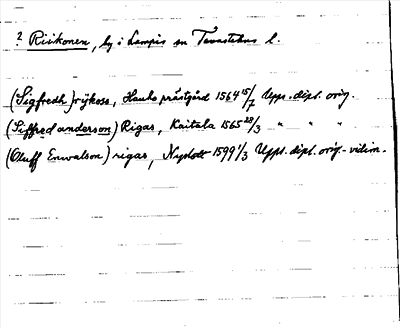 ? Riikonen, by i Lampis sn Tavastehus l.
(Sigfredh) rijkoss, Hauho prästgård 1564 15/7 Upps. dipl. orig.
(Siffred anderson) Rigas, Kaitala 1565 28/3 " " "
(Oluff Enwalson) rigas, Nyslott 1599 1/3 Upps. dipl. orig. - vidim.